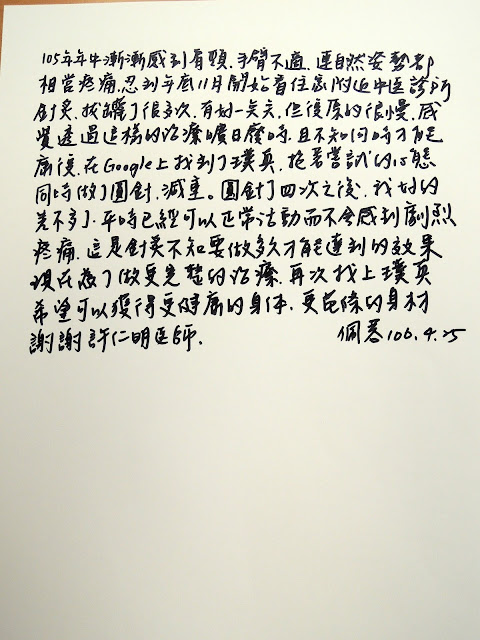 105年年中漸漸感到肩頸.手臂不適.連自然姿勢都
相當疼痛.忍到年底11月開始看住家附近中医診所
針灸.拔罐了很多次.有好一奌奌.但復原的很慢.感
覺透過這樣的治療曠日廢時.且不知何時才能
康復.在Google上找到了璞真.抱著嘗試的心態
同時做了圓針.減重。圓針了四次之後.我好的
差不多了.平時已經可以正常活動而不會感到劇烈
疼痛.這是針灸不知要做多久才能達到的效果
現在為了做更完整的治療.再次找上璞真
希望可以獲得更健康的身体.更苗條的身材
謝謝許仁明医師.
佩蓉106.4.25